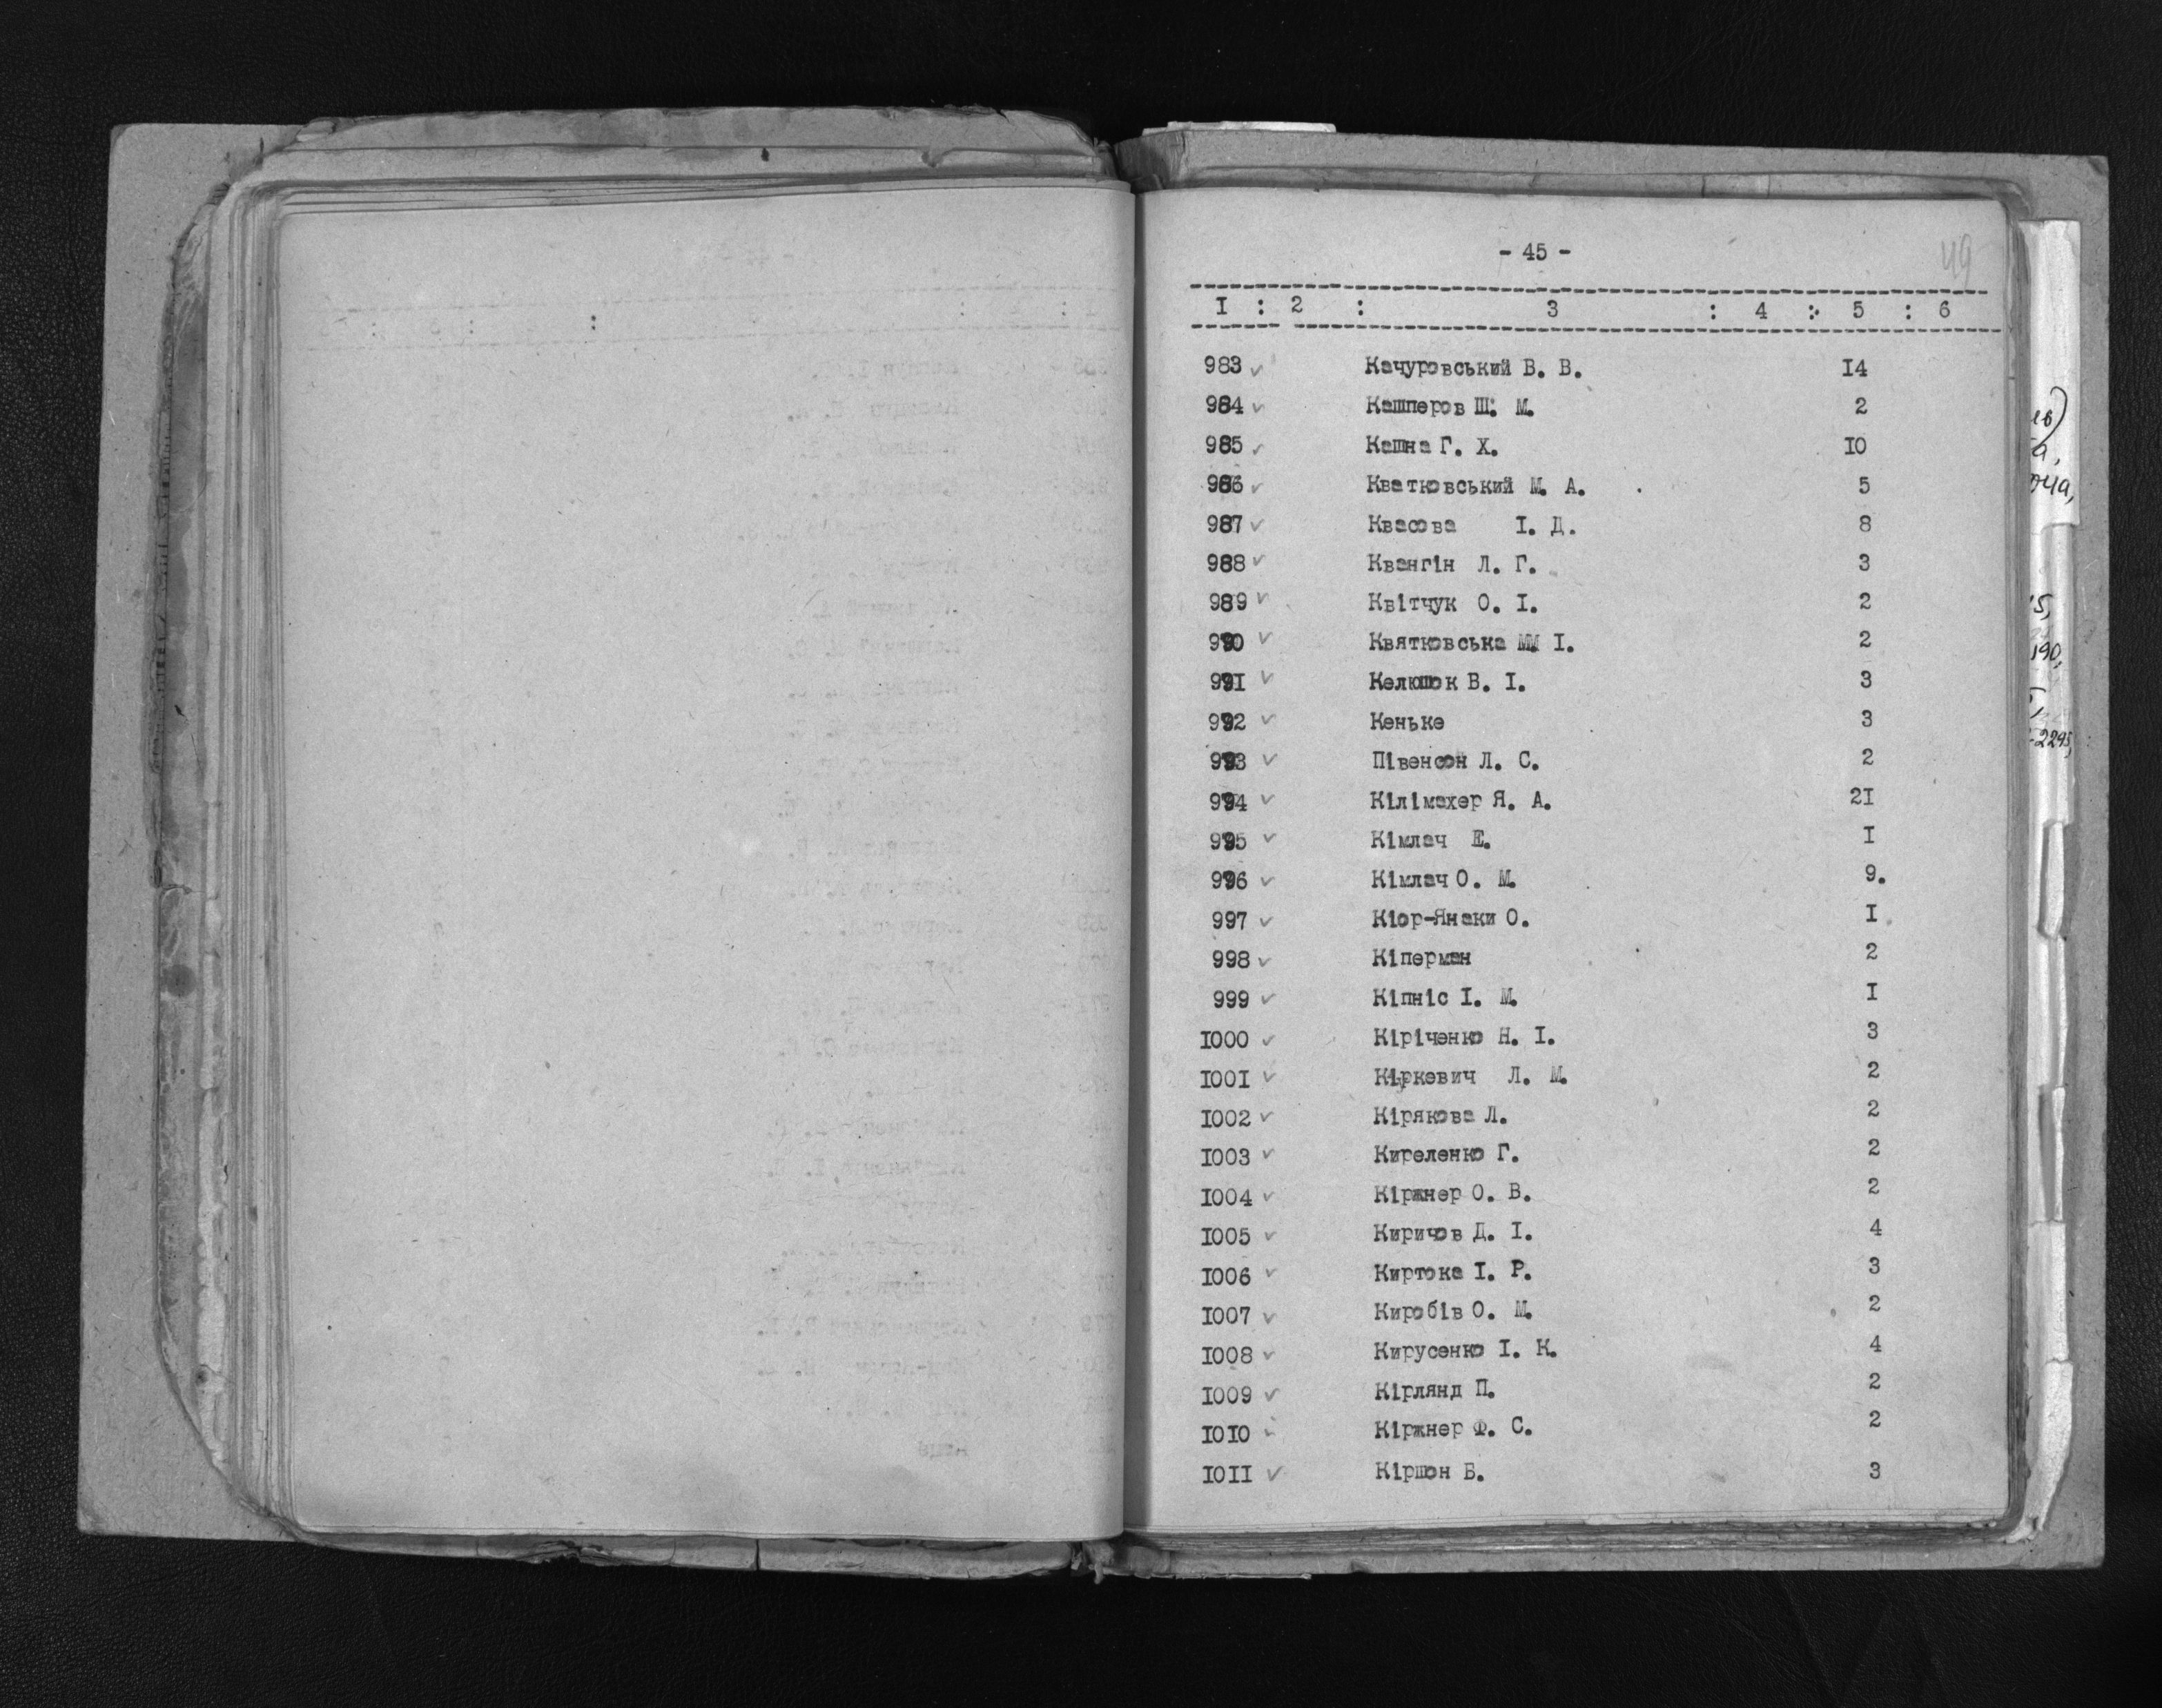 - 45 -
49
I : 2 : 3 : 4 : 5 : 6
983 ✓ Качуровський В. В. I4
984 ✓ Кашперов Ш. М. 2
985 ✓ Кашна Г. Х. I0
986 ✓ Кватковський М. А. 5
987 ✓ Квасова І. Д. 8
988 ✓ Квангін Л. Г. 3
989 ✓ Квітчук О. І. 2
990 ✓ Квятковська М. І. 2
99I ✓ Келюшок В. І. 3
992 ✓ Кеньке 3
993 ✓ Півенсон Л. С. 2
994 ✓ Кілімахер Я. А. 2I
995 ✓ Кімлач Е. I
996 ✓ Кімлач О. М. 9.
997 ✓ Кіор-Янаки О. I
998 ✓ Кіперман 2
999 ✓ Кіпніс І. М. I
I000 ✓ Кіріченко Н. І. 3
I00I ✓ Кіркевич Л. М. 2
I002 ✓ Кірякова Л. 2
I003 ✓ Киреленко Г. 2
I004 ✓ Кіржнер О. В. 2
I005 ✓ Киричов Д. І. 4
I006 ✓ Киртока І. Р. 3
I007 ✓ Киробів О. М. 2
I008 ✓ Кирусенко І. К. 4
I009 ✓ Кірлянд П. 2
I0I0 ✓ Кіржнер Ф. С. 2
I0II ✓ Кіршон Б. 3